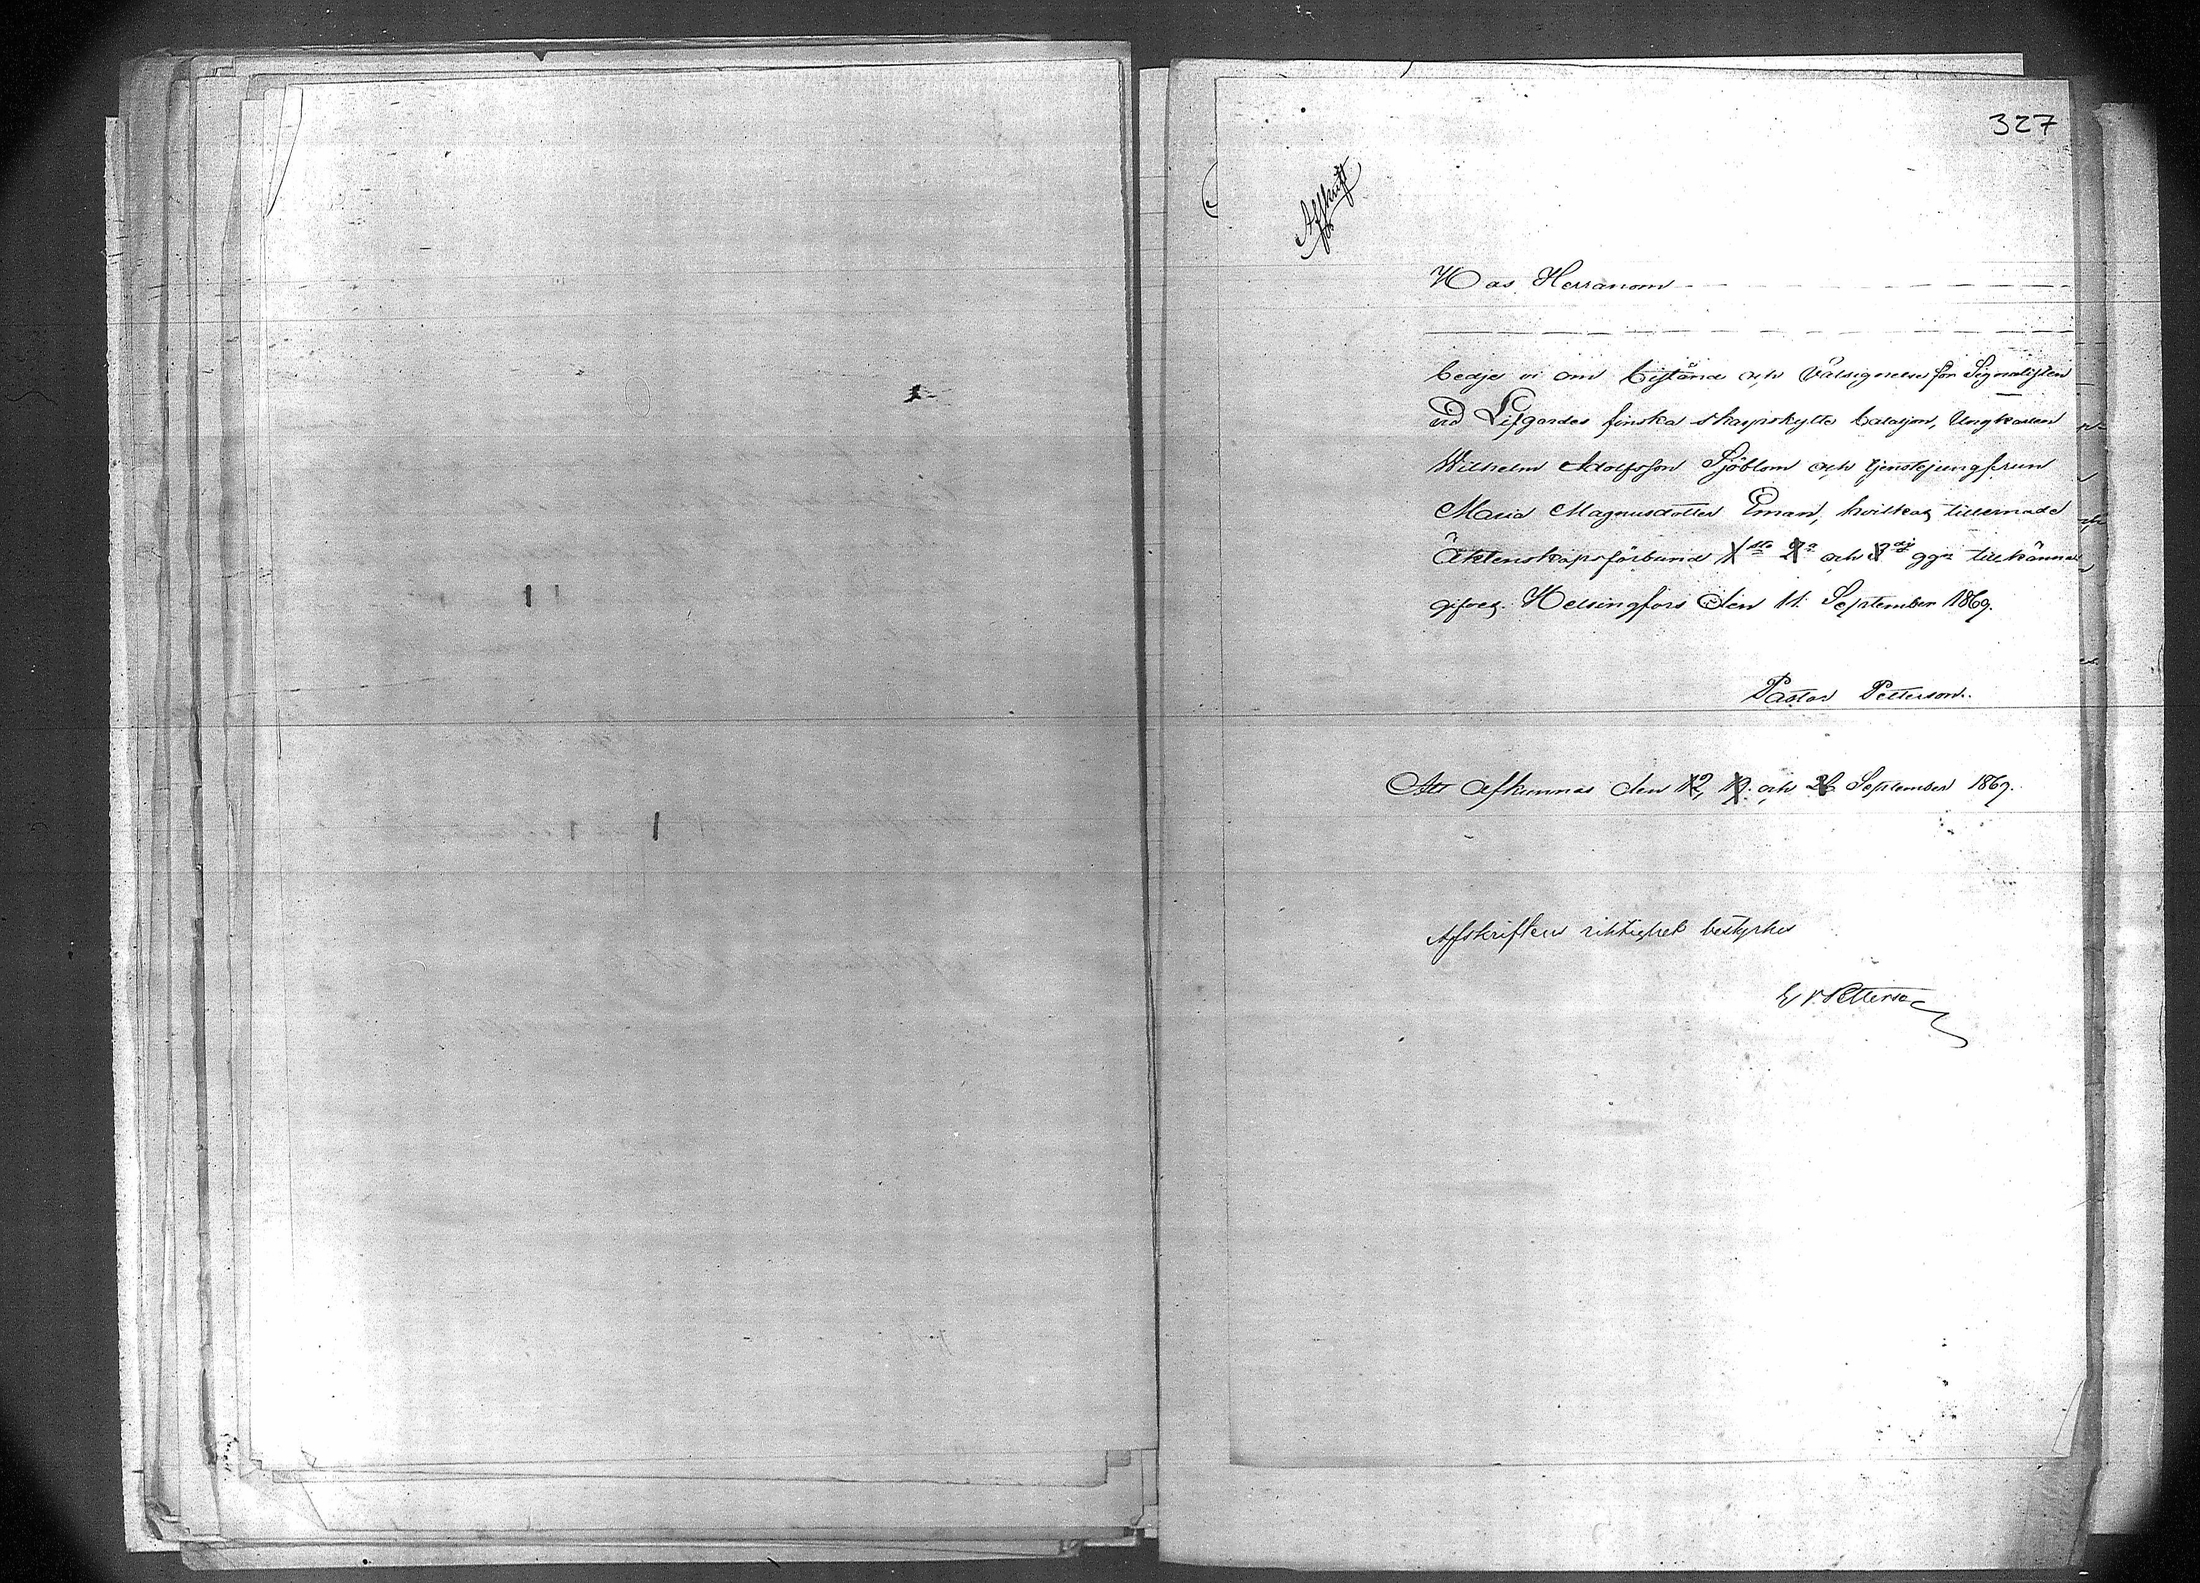 327
Afskrift
Hos Herranom - - - - - - - -
bedje vi om bistånd och Välsignelse för Signalisten
vid Lifgardes finska skarpskytte bataljon, Ungkarlen
Wilhelm Adolfsson Sjöblom och tjenstejungfrun
Maria Magnusdotter Eman, hvilkas tillernade
Äktenskapsförbund 1sta 2a och 3dje ggn tillkänna
gifves. Helsingfors den 11. September 1869.
Pastor Petterson.
Att afkunnas den 12, 19. och 26 September 1869.
Afskriftens riktighet bestyrker
Petterson